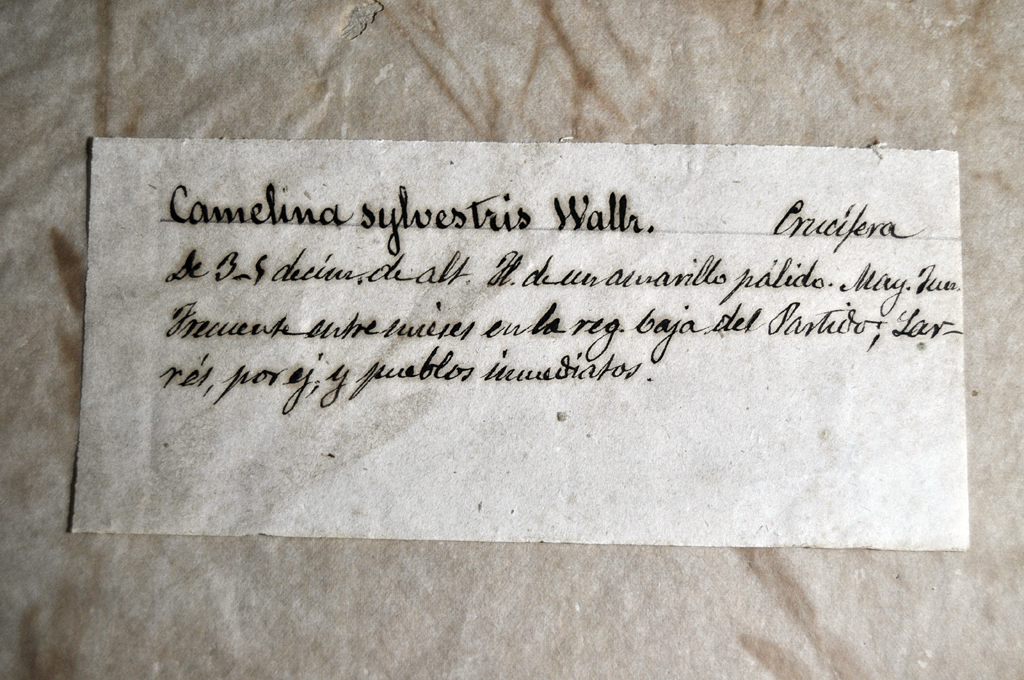 Camelina sylvestris Wallr. Crucífera
De 3-5 decím. de alt. Fl. de un amarillo pálido. May. Jun.
Frecuente entre mieses en la reg. baja del Partido; Lar-
rés, por ej, y pueblos inmediatos.